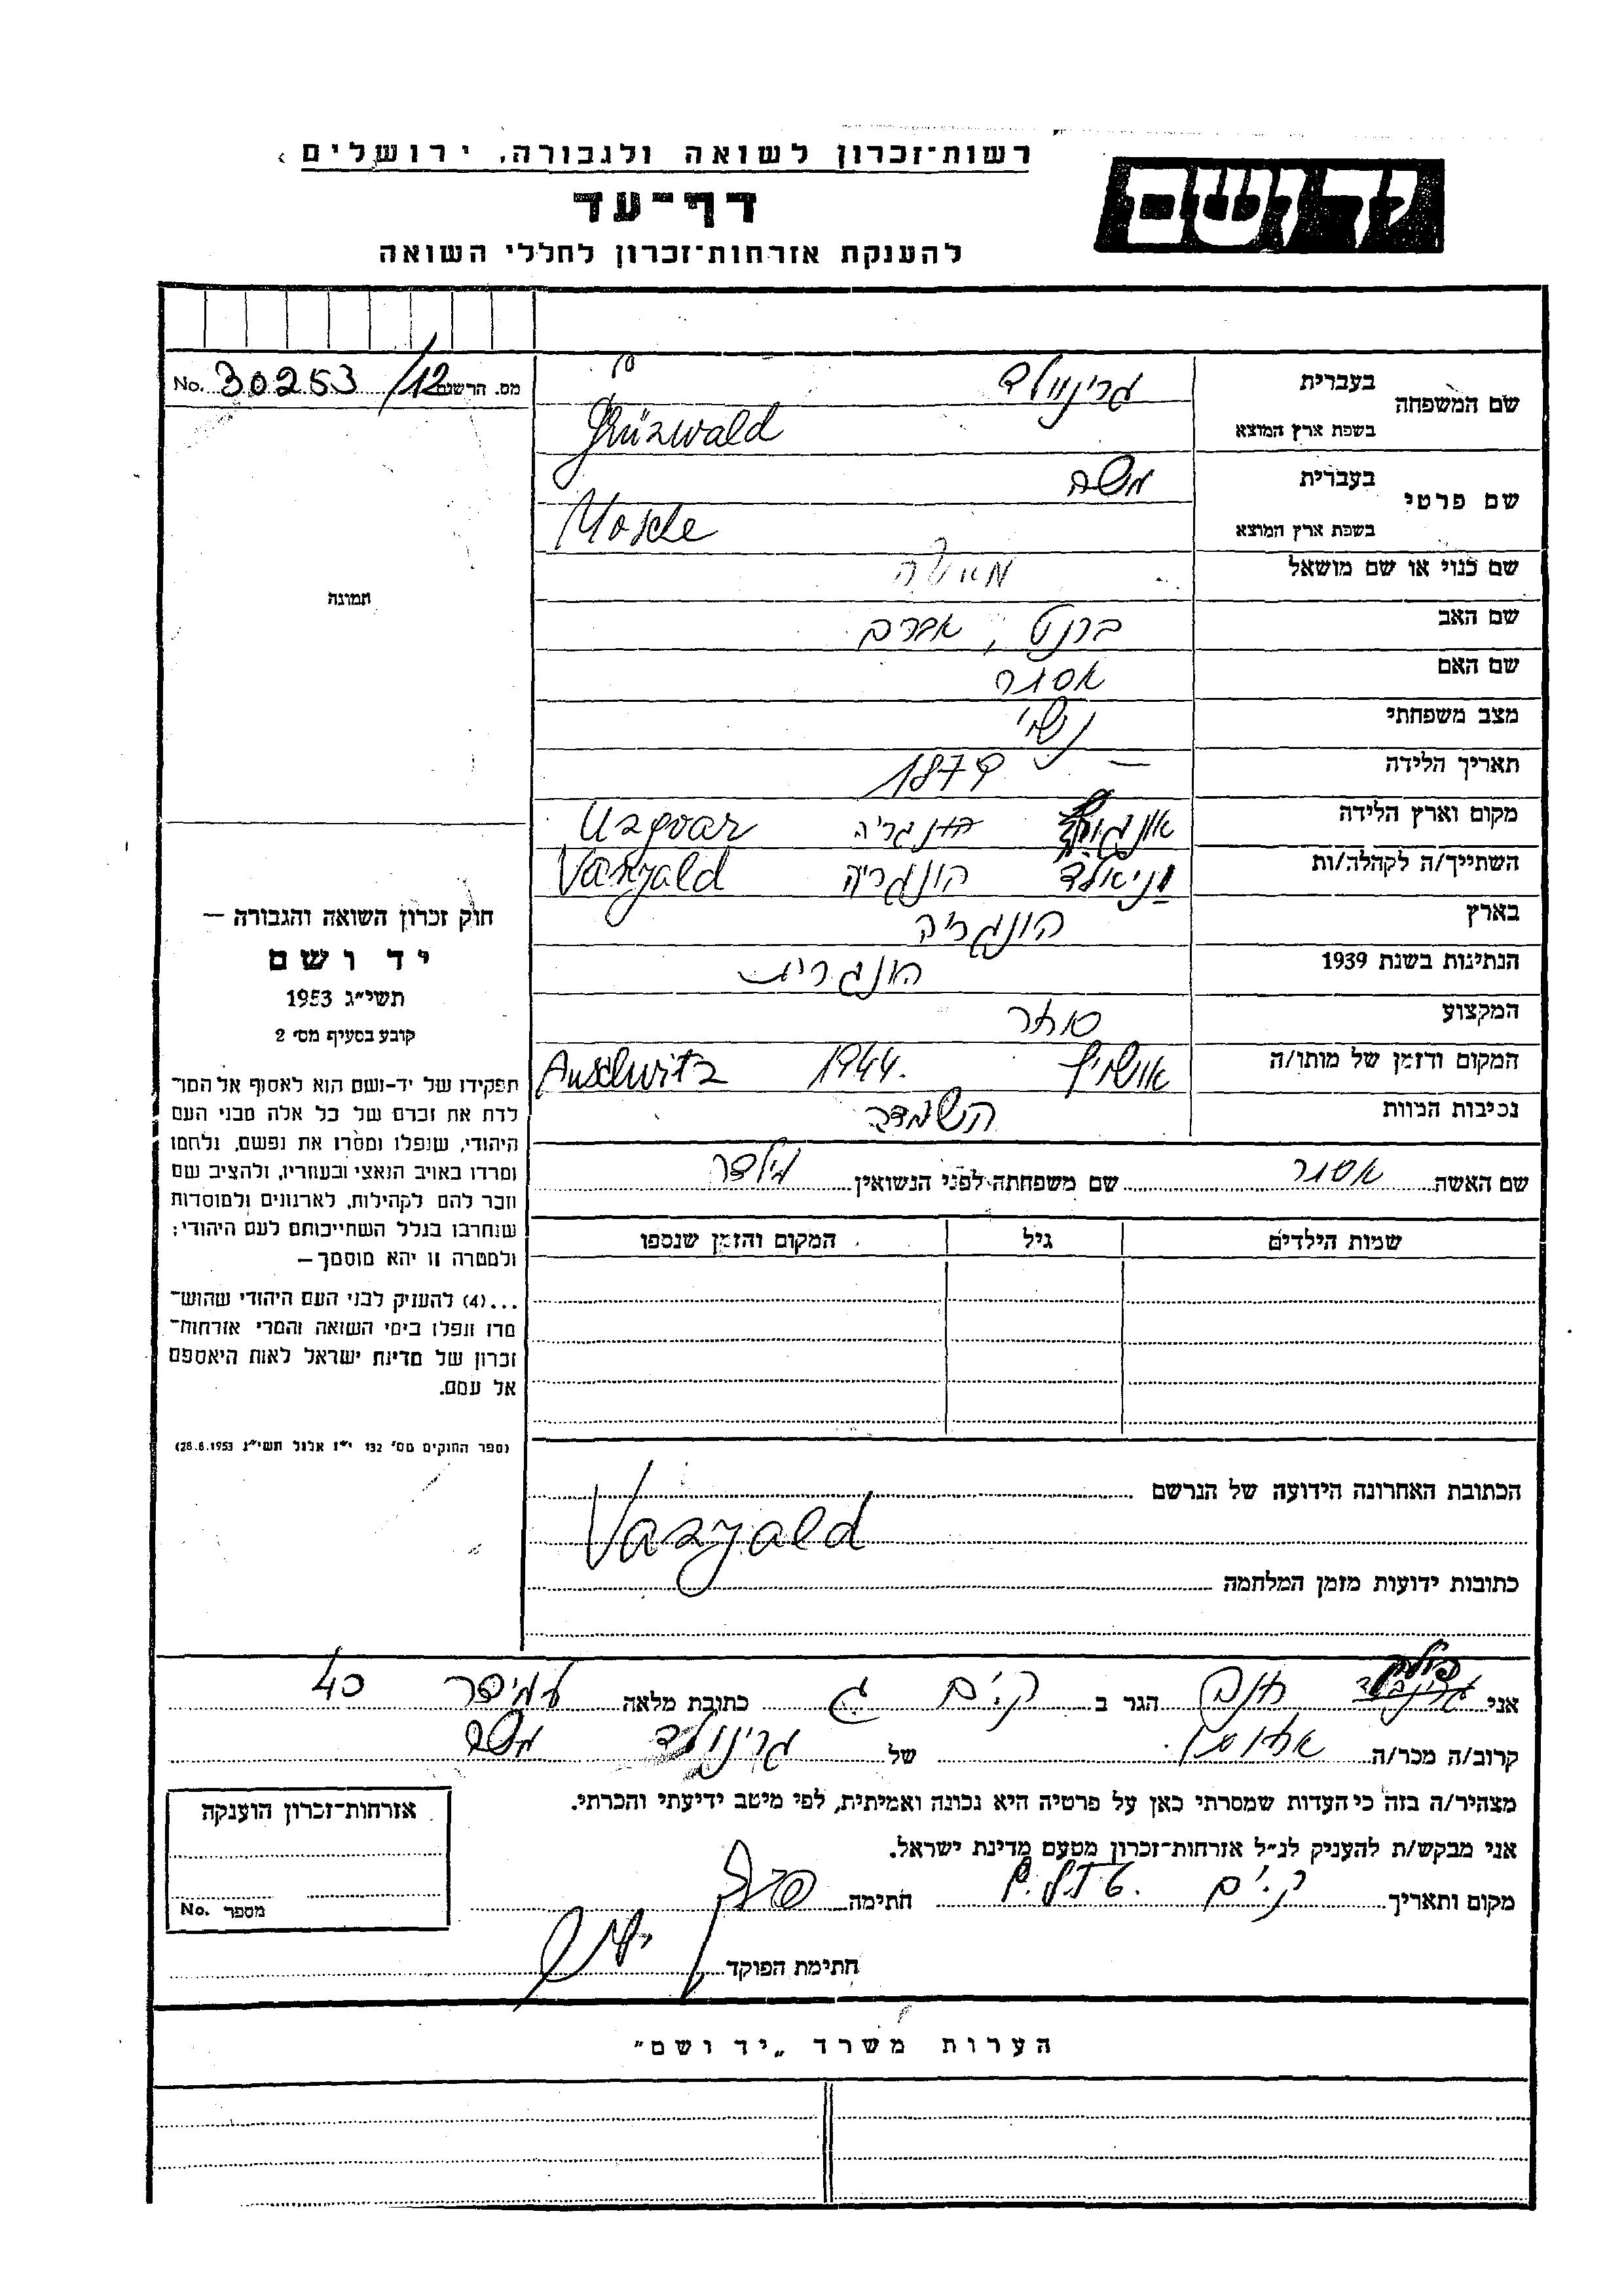 רשות־זכרון לשואה ולגבורה, ירושלים
יד ושם
דף־עד
להענקת אזרחות־זכרון לחללי השואה
No. 30253/12 מס. הרשום
שם המשפחה
בעברית גרינוולד
בשפת ארץ המוצא Grünwald
שם פרטי
בעברית משה
בשפת ארץ המוצא Mosche
שם כנוי או שם מושאל
שם האב ברנט, אברם
שם האם אסתר
מצב משפחתי נשוי
תאריך הלידה — 1879
מקום וארץ הלידה הונגריה Uzgvar
השתייך/ה לקהלה/ות הונגריה Vaszjald
בארץ הונגריה
הנתינות בשנת 1939 הונגרית
המקצוע סוחר
המקום והזמן של מותו/ה אושויץ 1944. Auschwitz
נסיבות המוות השמדה
שם האשה אסתר שם משפחתה לפני הנשואין
שמות הילדים גיל המקום והזמן שנספו
הכתובת האחרונה הידועה של הנרשם
Vaszjald
כתובות ידועות מזמן המלחמה
תמונה
חוק זכרון השואה והגבורה —
יד ושם
תשי״ג 1953
קובע בסעיף מס׳ 2
תפקידו של יד-ושם הוא לאסוף אל המו־
לדת את זכרם של כל אלה מבני העם
היהודי, שנפלו ומסרו את נפשם, נלחמו
ומרדו באויב הנאצי ובעוזריו, ולהציב שם
וזכר להם לקהילות, לארגונים ולמוסדות
שנחרבו בגלל השתייכותם לעם היהודי;
ולמטרה זו יהא מוסמך—
...(4) להעניק לבני העם היהודי שהוש־
מדו ונפלו בימי השואה והמרי אזרחות־
זכרון של מדינת ישראל לאות היאספם
אל עמם.
(ספר החוקים מס׳ 132 י״ז אלול תשי״ג 28.8.1953)
אני חנה הגר ב ק. ים ג כתובת מלאה 40
קרוב/ה מכר/ה של גרינולד משה
מצהיר/ה בזה כי העדות שמסרתי כאן על פרטיה היא נכונה ואמיתית, לפי מיטב ידיעתי והכרתי.
אני מבקש/ת להעניק לנ״ל אזרחות־זכרון מטעם מדינת ישראל.
מקום ותאריך ק. ים חתימה
חתימת הפוקד
אזרחות־זכרון הוענקה
No. מספר
הערות משרד „יד ושם״